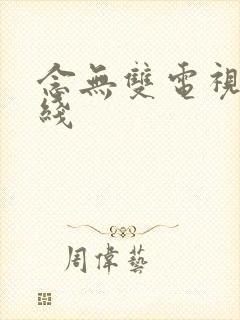 念無雙電視
綫
周偉藝